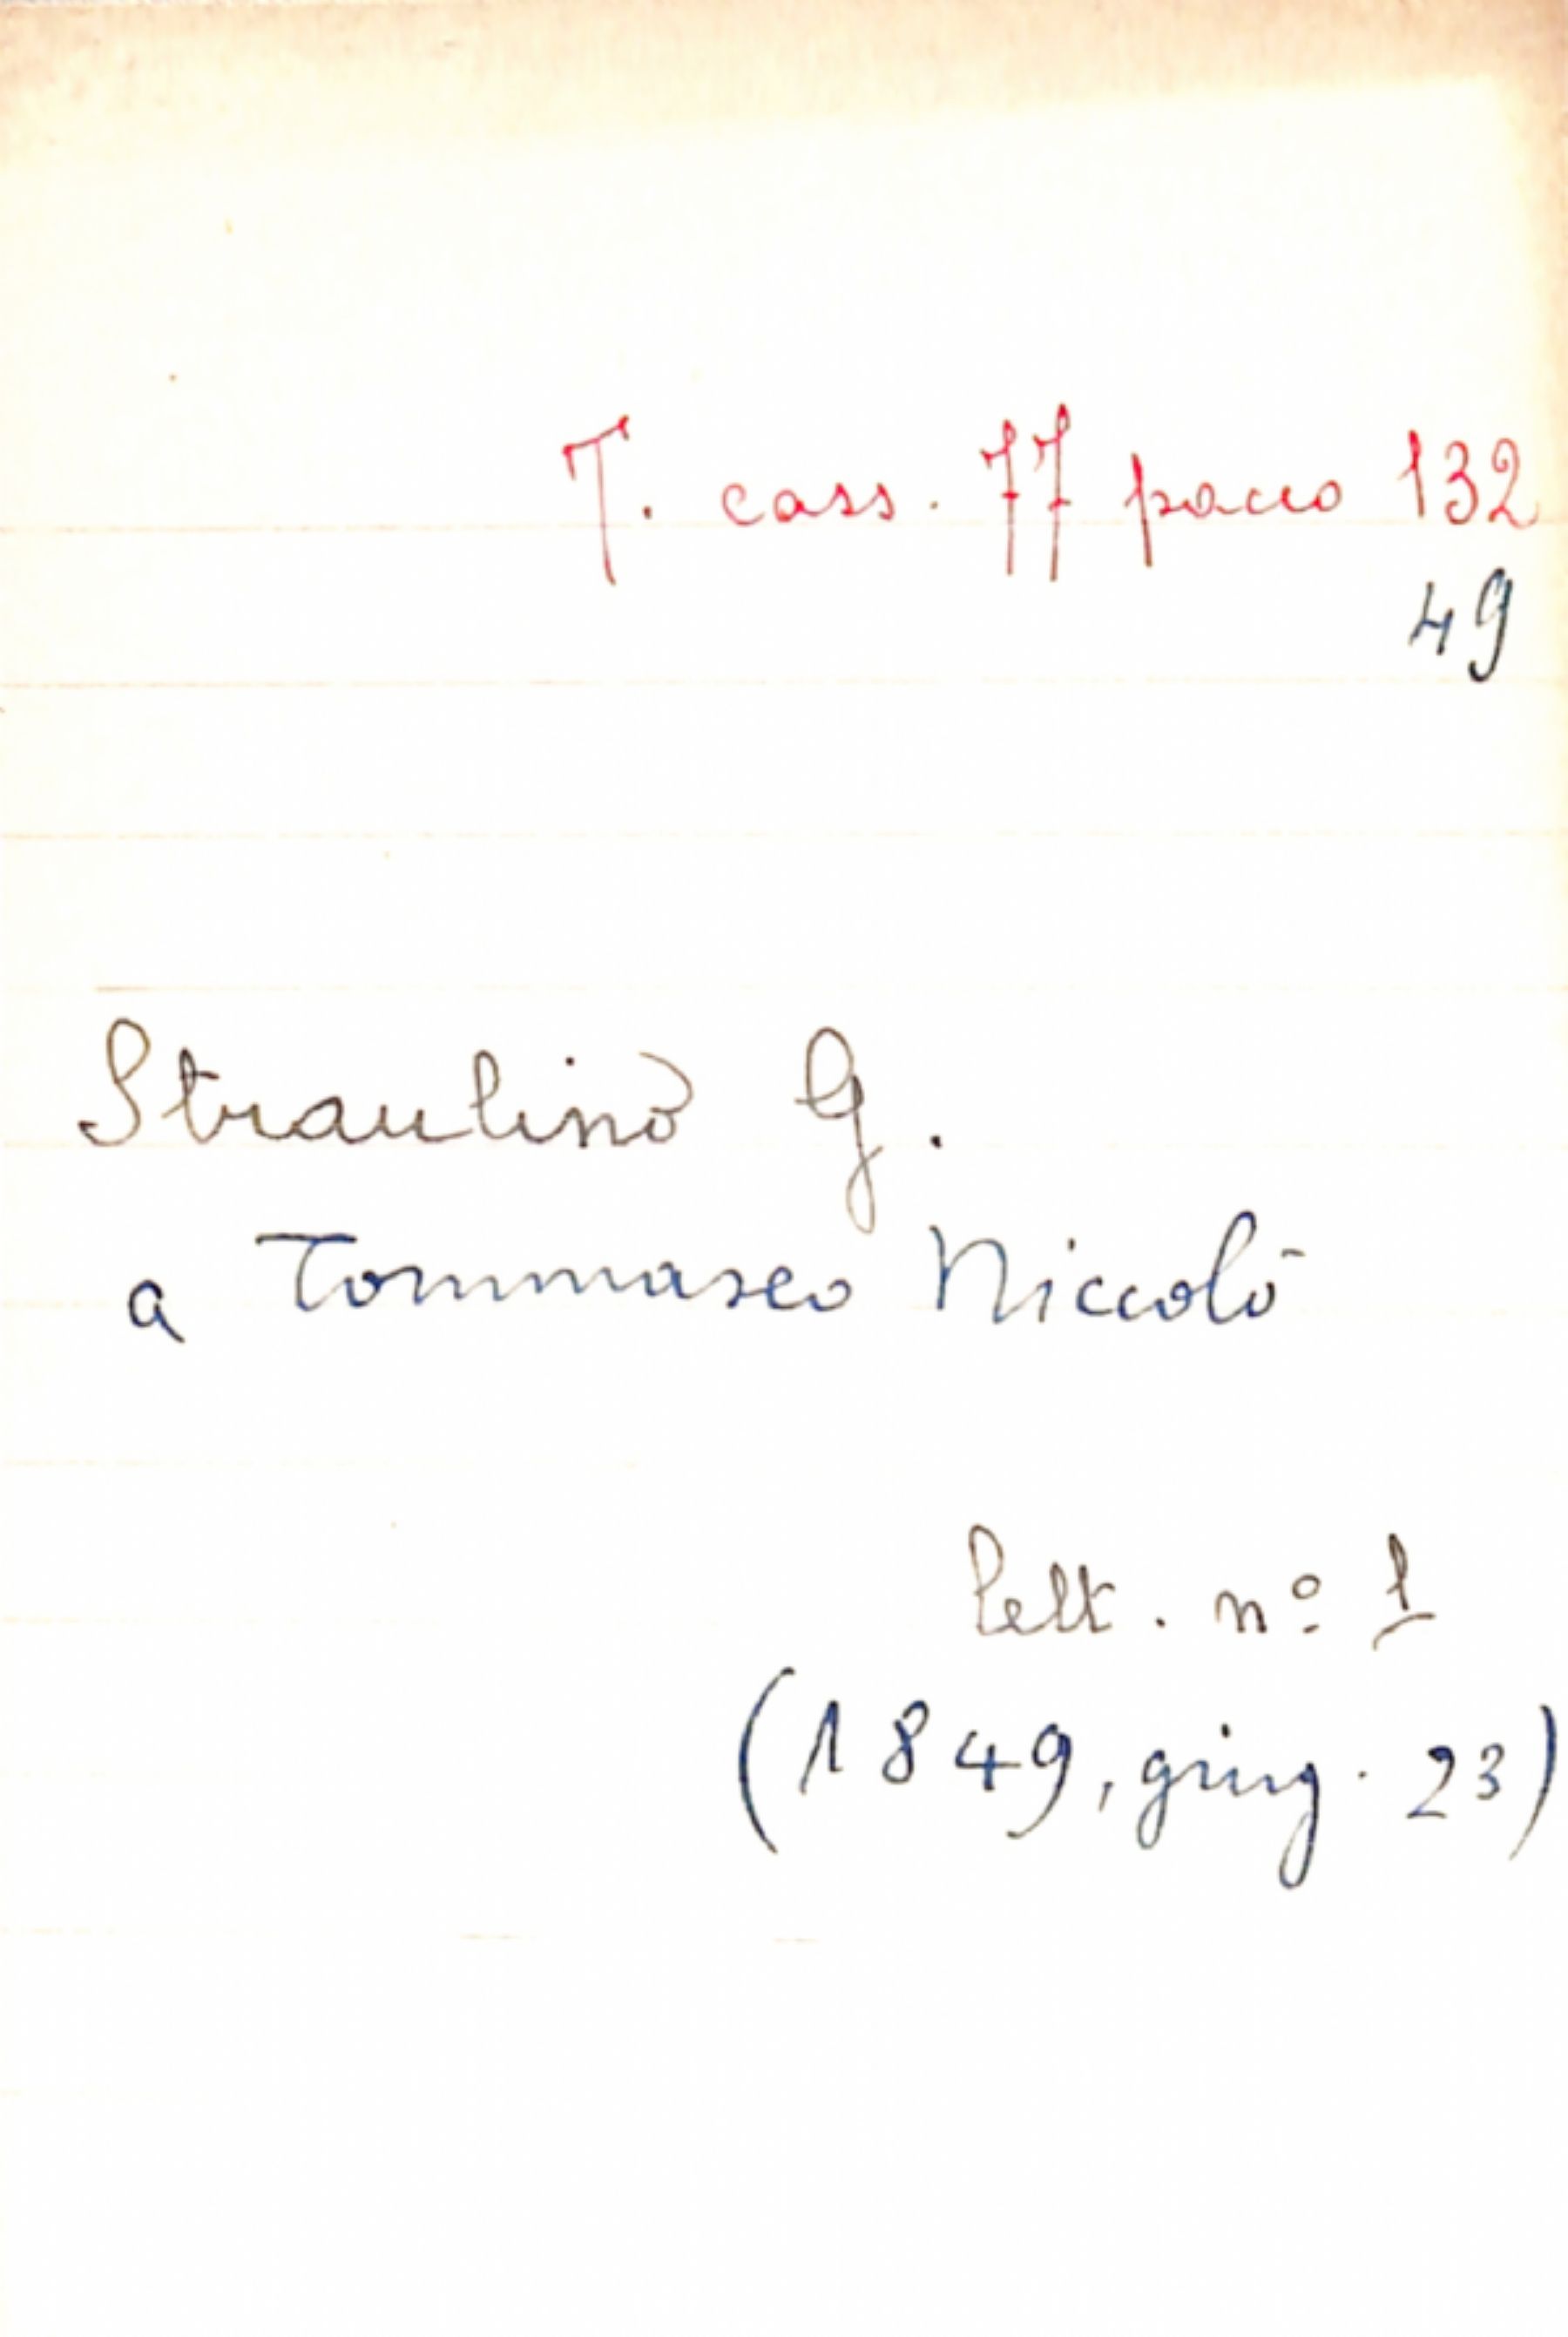 T. cass. 77 pacco 132
49
Straulino G.
a Tommaseo Niccolò
lett. nº 1
(1849, giug. 23)